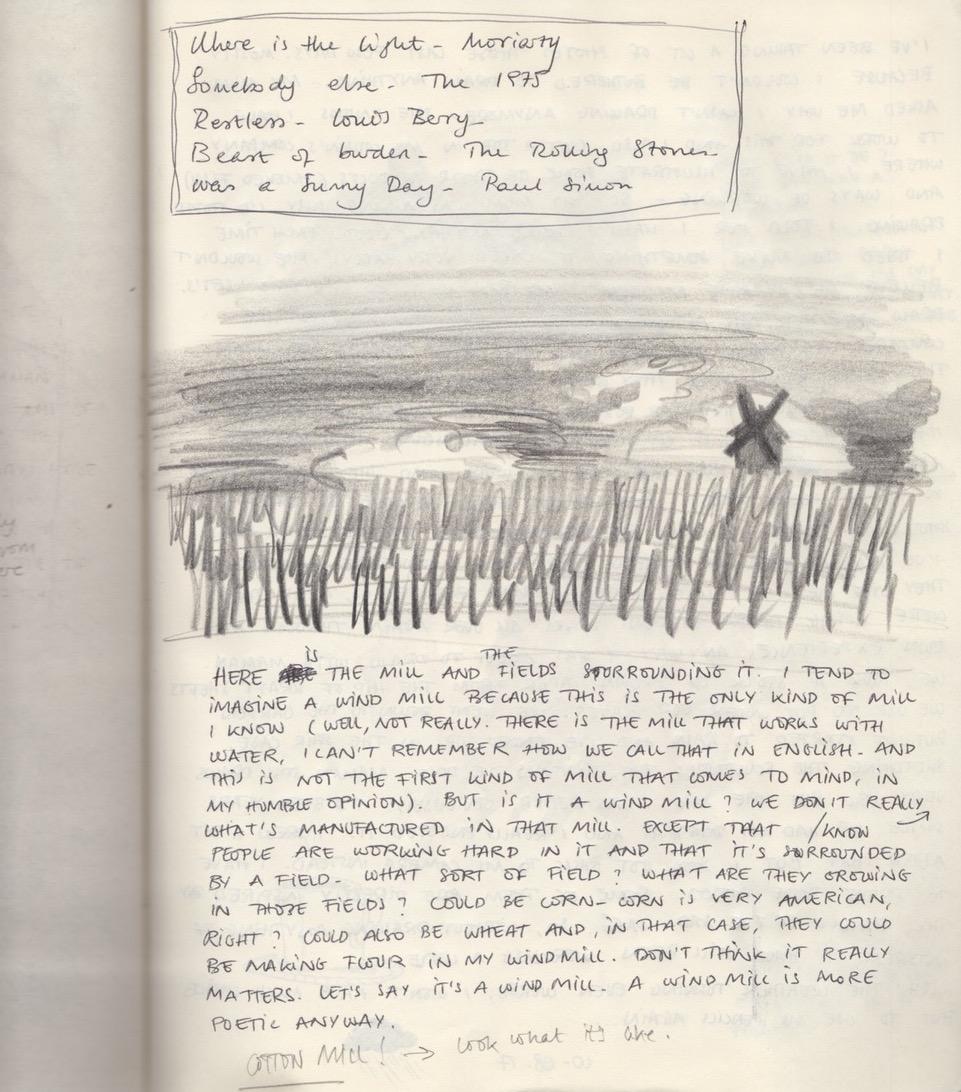 Where is the light - Moriarty
Somebody else - The 1975
Restless - Louis Berry
Beast of burden - The Rolling Stones
Was a Sunny Day - Paul Simon
IS THE
HERE THE MILL AND FIELDS SURROUNDING IT. I TEND TO
IMAGINE A WIND MILL BECAUSE THIS IS THE ONLY KIND OF MILL
I KNOW (WELL, NOT REALLY. THERE IS THE MILL THAT WORKS WITH
WATER, I CAN'T REMEMBER HOW WE CALL THAT IN ENGLISH - AND
THIS IS NOT THE FIRST KIND OF MILL THAT COMES TO MIND, IN
MY HUMBLE OPINION). BUT IS IT A WIND MILL? WE DON'T REALLY
WHAT'S MANUFACTURED IN THAT MILL. EXCEPT THAT / KNOW
PEOPLE ARE WORKING HARD IN IT AND THAT IT'S SURROUNDED
BY A FIELD - WHAT SORT OF FIELD? WHAT ARE THEY GROWING
IN THOSE FIELDS? COULD BE CORN - CORN IS VERY AMERICAN,
RIGHT? COULD ALSO BE WHEAT AND, IN THAT CASE, THEY COULD
BE MAKING FLOUR IN MY WINDMILL. DON'T THINK IT REALLY
MATTERS. LET'S SAY IT'S A WIND MILL. A WIND MILL IS MORE
POETIC ANYWAY.
COTTON MILL! → look what it's like.